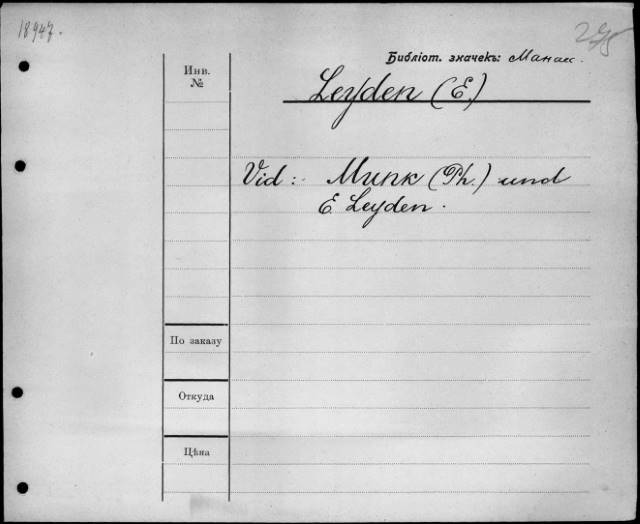 18947.
275
Библіот. значекъ: Манас.
Инв.
№
Leyden (E.)
Vid: Munk (Ph.) und
E. Leyden.
По заказу
Откуда
Цѣна